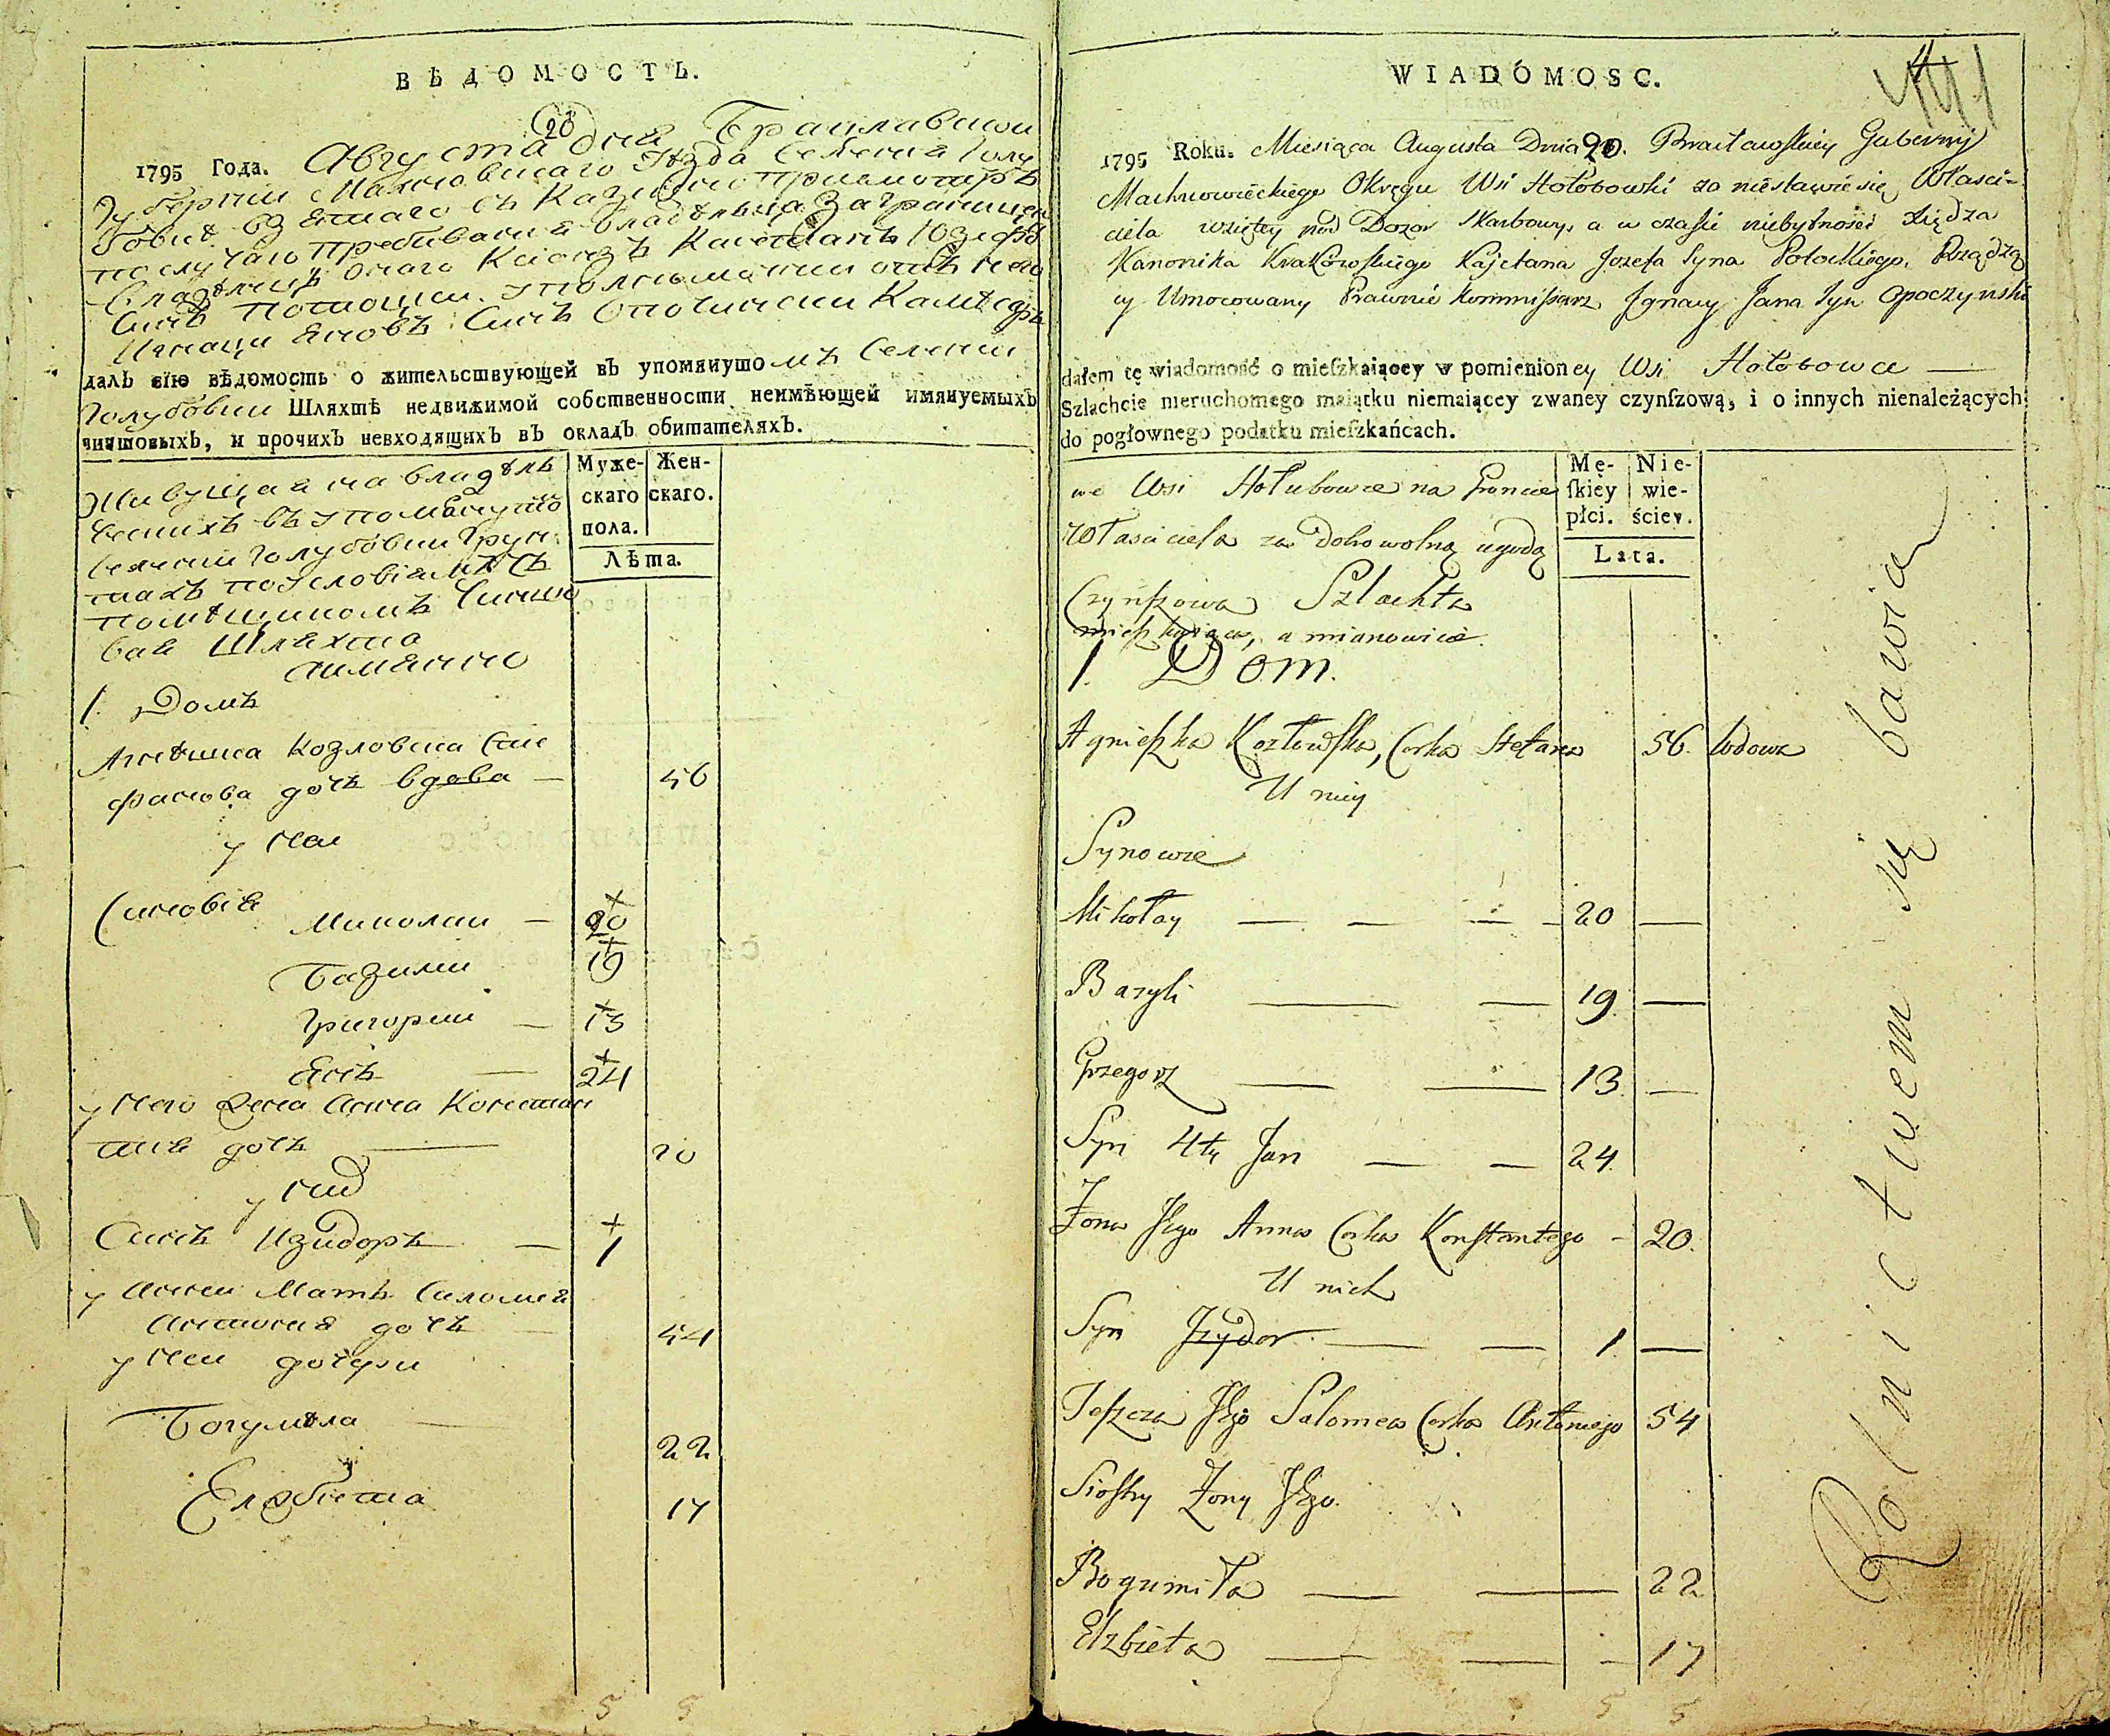 ВѢДОМОСТЬ.
20
1795 Года. Августа дня Брацлавской
Губернии Махновскаго уѣзда Селения Голу
бовки взятаго въ Казенной присмотръ
по случаю пребывания владѣльца Заграницею
Владѣлецъ онаго Ксіондзъ Каетанъ Юзефа
Синъ Потоцки
Игнаци Яновъ Синъ Опочински Комисаръ
далъ сїю вѣдомость о жительствующей въ упомянутомъ Селении
Голубовки Шляхтѣ недвижимой собственности неимѣющей имянуемыхъ
чиншовыхъ, и прочихъ невходящихъ въ окладъ обитателяхъ.
Муже-
скаго
пола.
Жен-
скаго.
Лѣта.
Живущая на владѣль
ческихъ въ упомянуто
Селении Голубовки Грун
тахъ по условіямъ съ
помѣщикомъ Чиншо
вая Шляхта
а имянно
1. Домъ
Агнѣшка Козловска Сте
фанова дочь вдова — 56
у неи
Синовія Миколаи — 20
Базили 19
Григории — 13
Янъ — 24
у него жена Анна Констан
тия дочь — 20
у них
Синъ Изидоръ — 1
у Анни Мать Саломия
Антония дочь — 54
у неи дочери
Богумѣла — 22
Елжбѣта 17
5 5
WIADOMOSC.
1795 Roku. Miesiąca Augusta Dnia 20. Bracławskiey Gubernij
Machnowieckiego Okręgu Wsi Hołobowki za niestawie się Własci-
ciela wziętey pod Dozor Skarbowy, a w czasie niebytności Xiędza
Kanonika Krakowskiego Kajetana Jozefa Syna Potockiego, Rządzą
cy Umocowany Prawnie Kommissarz Jgnacy Jana Syn Opoczynski
dałem tę wiadomość o mieſzkaiącey w pomienioney Wsi Hołobowce —
Szlachcie nieruchomego maiątku niemaiącey zwaney czynſzową, i o innych nienależących
do pogłownego podatku mieſzkańcach.
Mę-
ſkiey
płci.
Nie-
wie-
ściey.
Lata.
we Wsi Hołubowce na Gruncie
Własciciela za Dobrowolną ugodą
Czynſzowa Szlachta
mieſzkaiąca, a mianowicie.
1. Dom.
Agnieſzka Kozłowſka, Corka Stefana 56. Wdowa
U niey
Synowie
Mikołay — — — 20 —
Bazyli — — 19. —
Grzegorz — — 13. —
Syn 4ty Jan — — 24.
Żona Jego Anna Corka Konſtantego — 20.
U nich
Syn Jzydor — — 1. —
Teſzcza Jego Salomea Corka Antoniego 54
Sioſtry Żony Jego.
Bogumiła — — 22
Elzbieta — — — 17
5 5
Rolnictwem się bawią